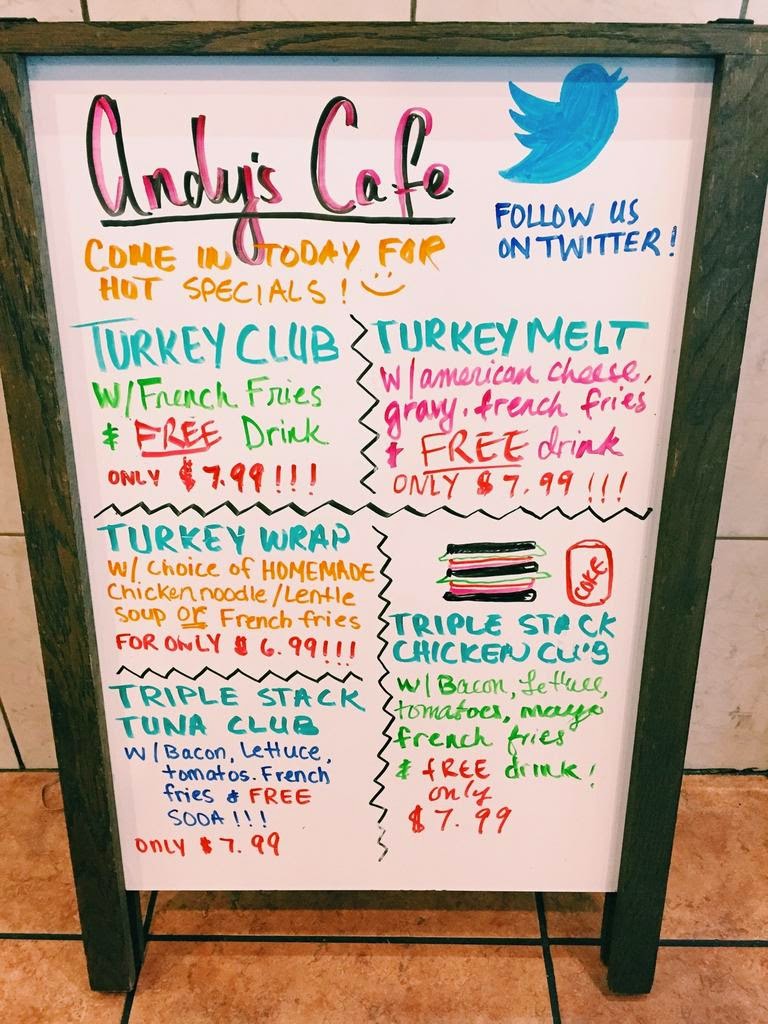 Andy's Cafe
FOLLOW US
ON TWITTER!
COME IN TODAY FOR
HOT SPECIALS!
TURKEY CLUB
W/French Fries
& FREE Drink
ONLY $7.99!!!
TURKEY MELT
W/american cheese,
gravy. french fries
& FREE drink
ONLY $7.99!!!
TURKEY WRAP
W/ Choice of HOMEMADE
Chicken noodle/Lentle
Soup or French fries
FOR ONLY $6.99!!!
TRIPLE STACK
TUNA CLUB
W/Bacon, Lettuce,
tomatos. French
fries & FREE
SODA!!!
ONLY $7.99
COKE
TRIPLE STACK
CHICKEN CLUB
W/Bacon, Lettuce,
tomatoes, mayo
french fries
& fREE drink!
only
$7.99